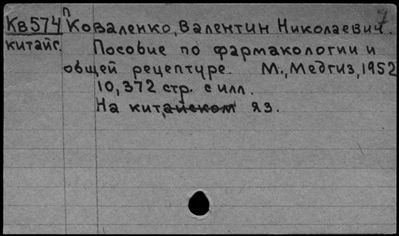 П 7
Кв574 Коваленко, Валентин Николаевич.
китайс. Пособие по фармакологии и
общей рецептуре. М., Медгиз, 1952
10, 372 стр. с илл.
На китайском яз.